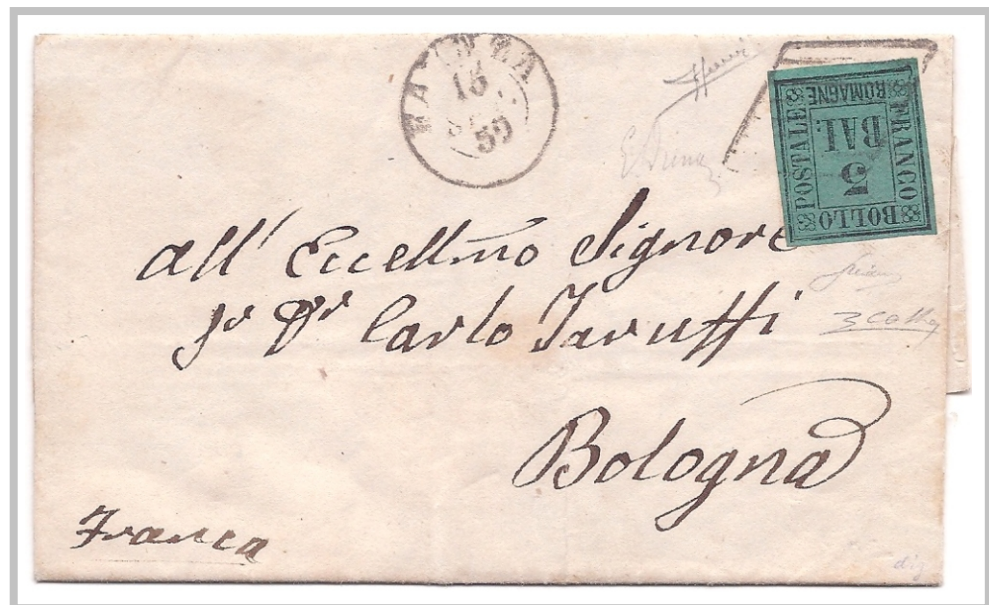 15
59
E. Diena
FRANCO
BOLLO
POSTALE
ROMAGNE
BAI.
5
all' Eccellmo Signore
Dr Carlo Taruffi
Bologna
Franca